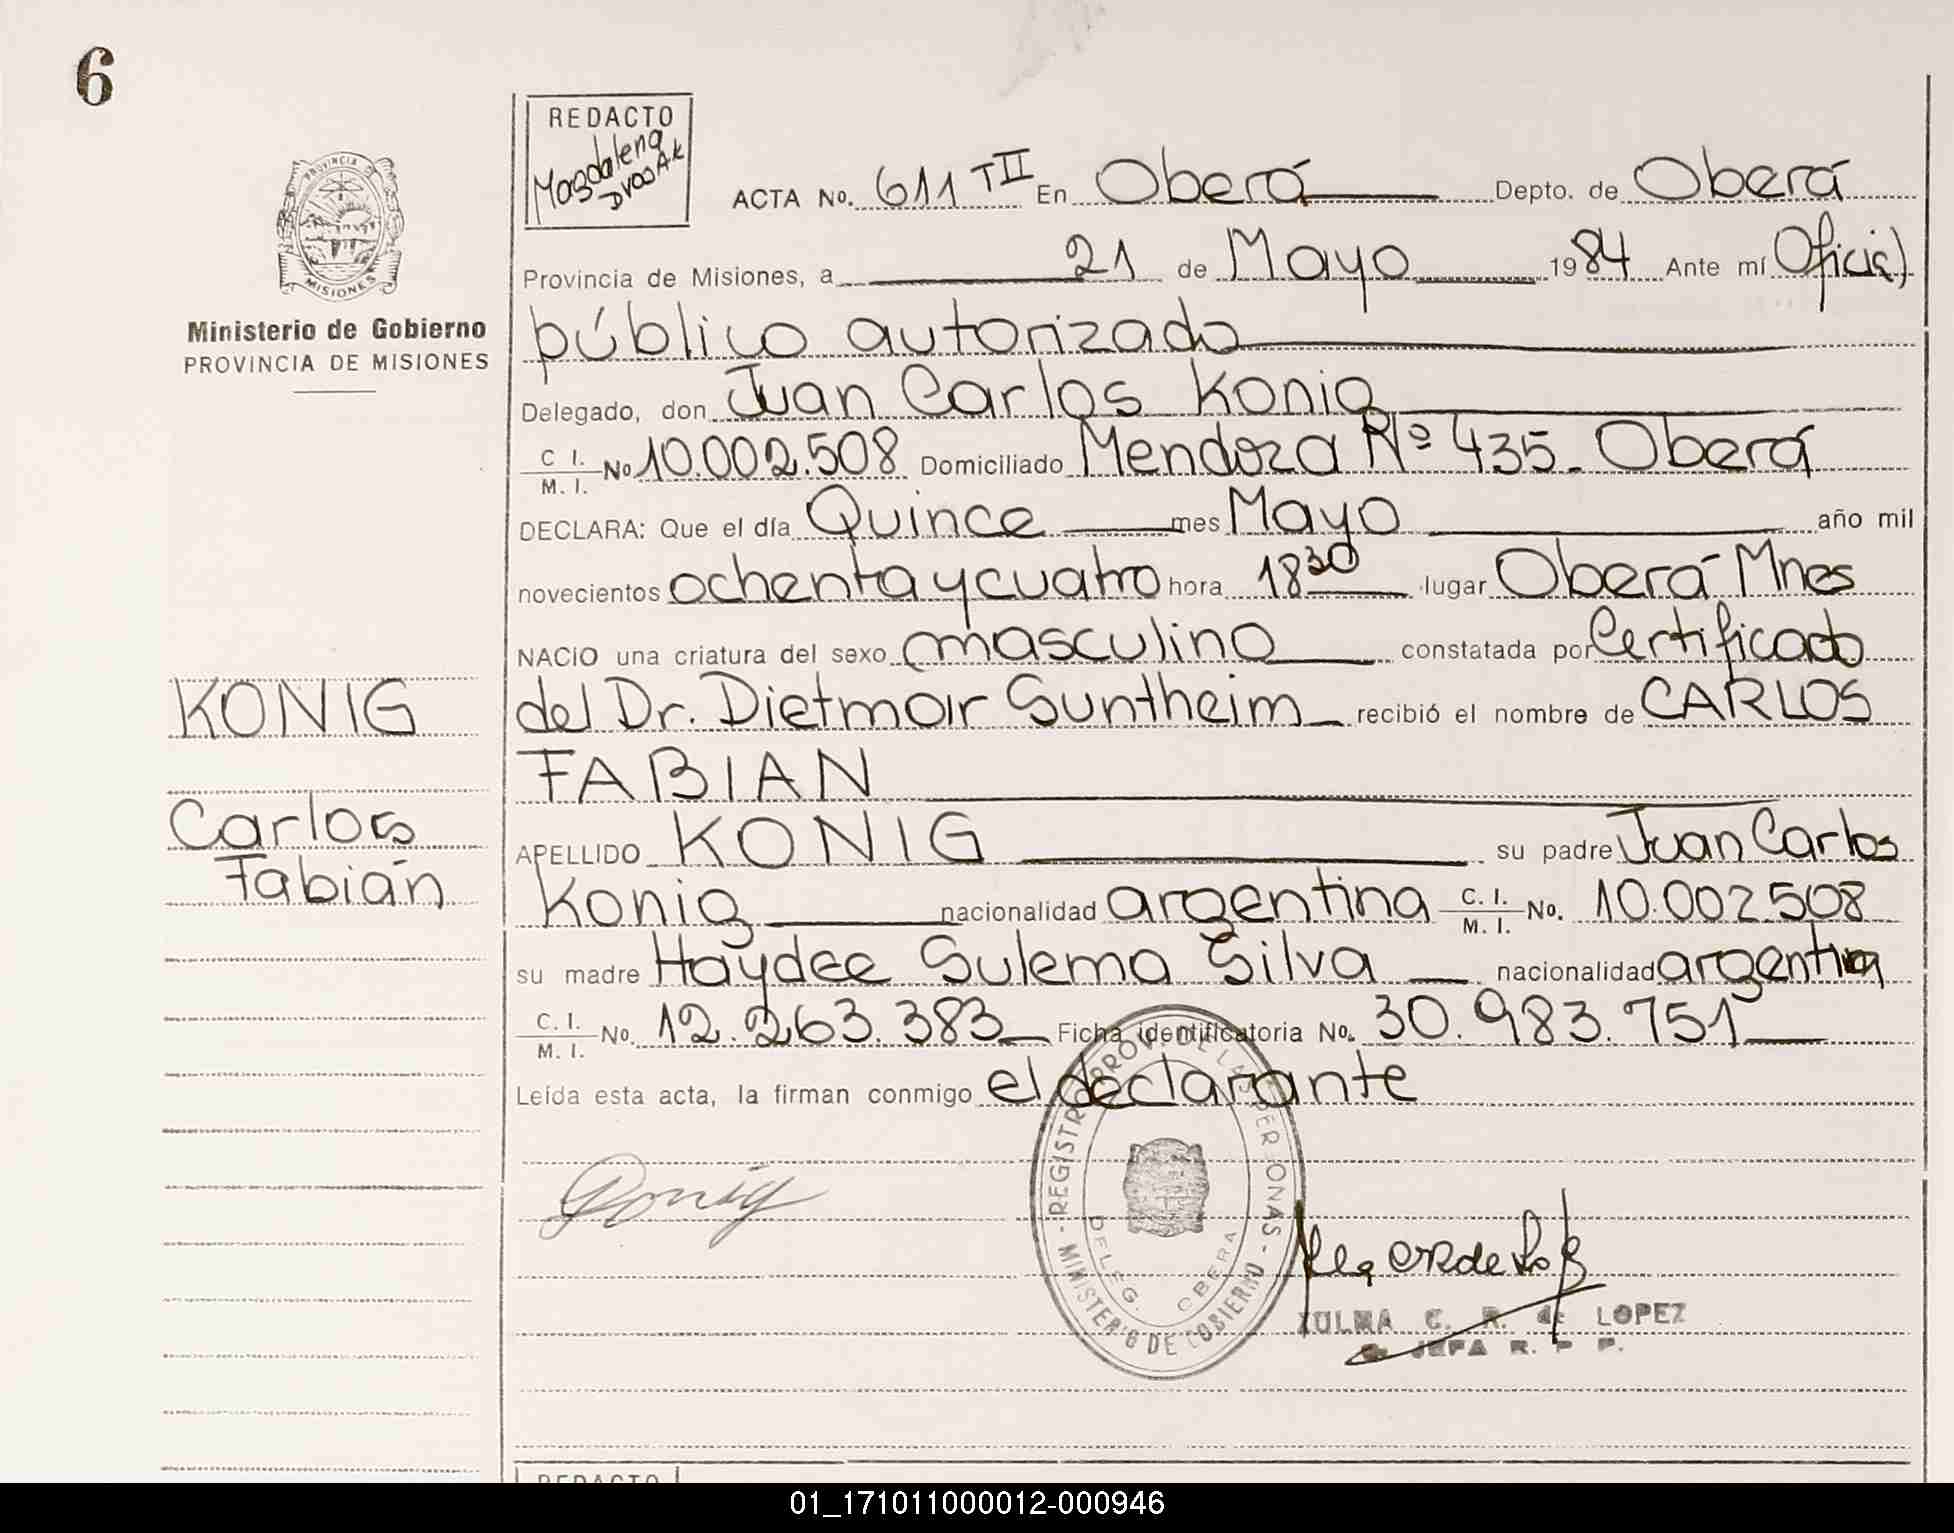 6
REDACTO
Magdalena
PROVINCIA DE
MISIONES
Ministerio de Gobierno
PROVINCIA DE MISIONES
ACTA No. 611 TII En Oberá Depto. de Oberá
Provincia de Misiones, a 21 de Mayo 1984 Ante mí Oficial
público autorizado
Delegado, don Juan Carlos Konig
C I. M. I. No 10.002.508 Domiciliado Mendoza Nº 435. Oberá
DECLARA: Que el día Quince mes Mayo año mil
novecientos ochenta y cuatro hora 18 30 lugar Oberá Mnes
NACIO una criatura del sexo masculino constatada por Certificado
KONIG
del Dr. Dietmar Suntheim recibió el nombre de CARLOS
FABIAN
Carlos
Fabián
APELLIDO KONIG su padre Juan Carlos
Konig nacionalidad argentina C. I. M. I. No. 10.002508
su madre Haydee Sulema Silva nacionalidad argentina
C. I. M. I. No. 12.263.383 Ficha identificatoria No. 30.983.751
Leída esta acta, la firman conmigo el declarante
Konig
- REGISTRO PROV. DE LAS PERSONAS -
MINISTERIO DE GOBIERNO
DELEG. OBERA
ZULMA C. R. de LOPEZ
JEFA R. P P.
REDACTO
01_171011000012-000946